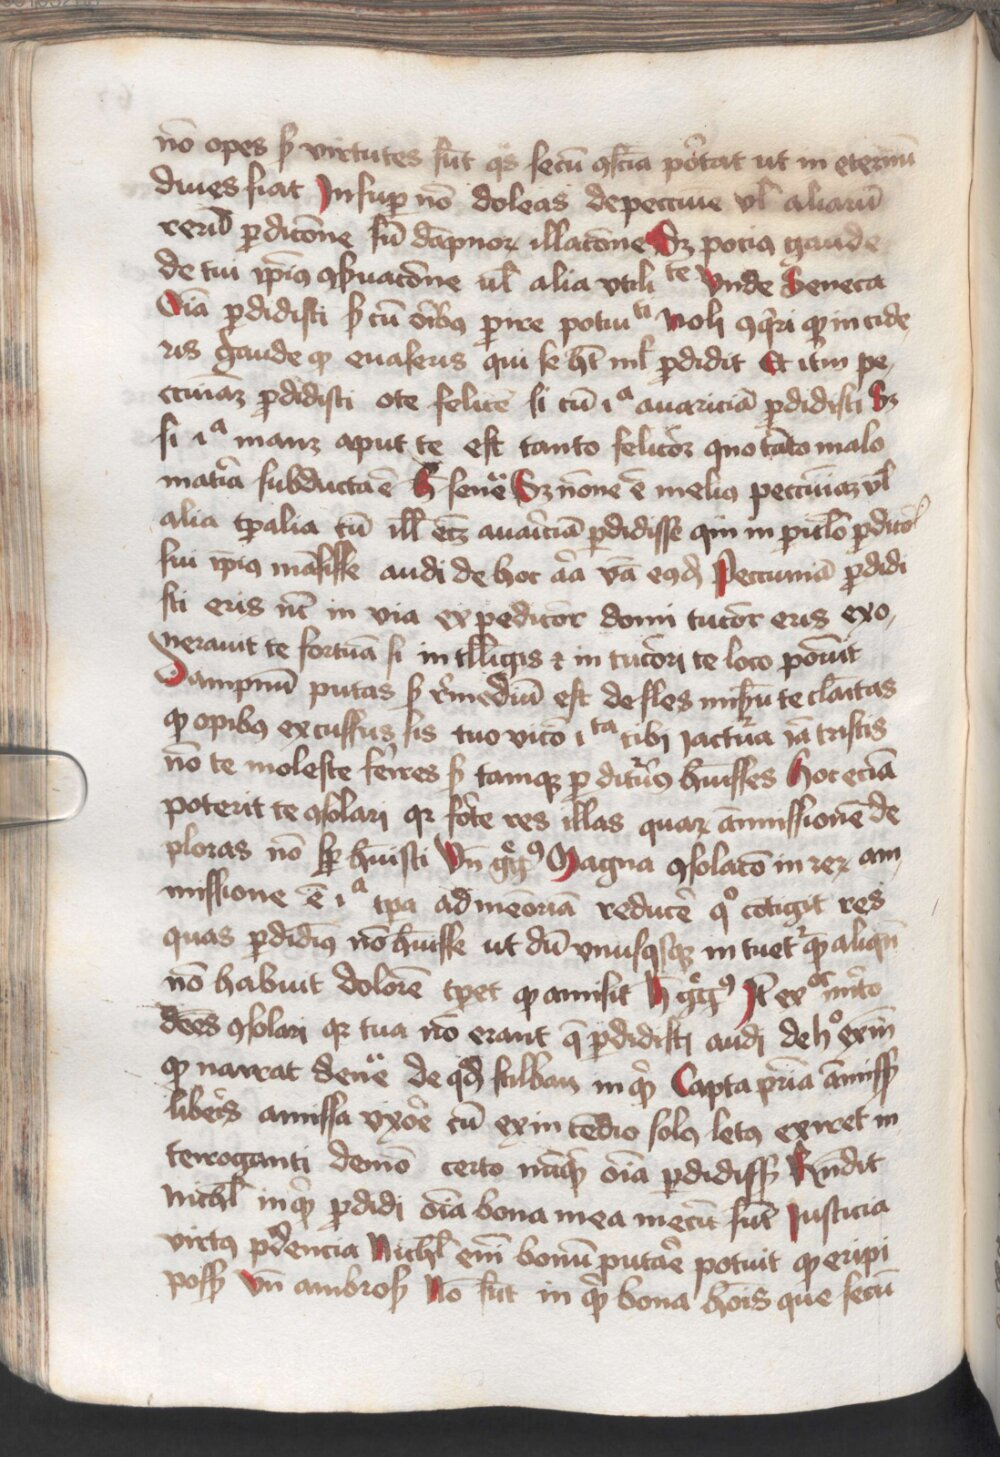 nō opes s virtutes sūt qs secū gsciā portat ut in eternū
dives fiat Insup nō doleas de peccuīe vl aliarū
rerū pdicōne sū dāpnoꝝ illacōne Sꝫ pocius gaude
de tui ipius gsuacōne ul alia utilite Unde Seneca
Oīa pdidisti s cū oībus pire potuiti Noli gqri qp incide
ris gaude qp evaseris qui se ht nl pdidit Et itm pe
ccuniaꝫ pdidisti o te felicē si cū ia avariciā pdidisti Sꝫ
si ia manꝫ aput te est tanto felicior quo tāto malo
materia subducta ē h seneᵃ Sꝫ nōne ē melius peccuniaꝫ vl
alia tpalia cū ill avariciā pdidisse qm in piclo pdicōis
sui ipius māsisse audi de hoc Peccuniā pdidi
sti eris nc in via expedicior domi tucior eris exo
neravit te fortuna si intelligis ⁊ in tuciori te loco posuit
Dampnū putas s remediū est defles miserū te clamitas
qp opibus excussus sis tuo vicio ita tibi iactura tā tristis
nō te moleste ferres s tamqꝫ pditurus huisses hoc eciā
poterit te gsolari qr forte res illas quaꝝ ammissionē de
ploras nō sp huisti Un grgᵒ Magna gsolatō in reꝝ am
missione ē ia tpa ad meoriā reducere qᵒ cōtigit res
quas pdidimus nō huisse ut dū unusqsqꝫ intuetr qp aliqn
nō habuit dolorē tpet qp amisit h grgᵒ It ex mrito
debes gsolari qr tua nō erant q pdidisti audi de hᵒ exm
qp narrat Seneᵃ de qd stilban inqs Capta pria amiss
liberis amissa uxore cū ex incēdio solus letus exiret in
terroganti demo certo nūqd oīa pdidiss Rndit
Nichl inqs pdidi oīa bona mea mecū sūt Iusticia
virtus pdencia Nichl em bonū putare potuit qp eripi
poss Un ambros Nō sūt inqs bona hois que secū